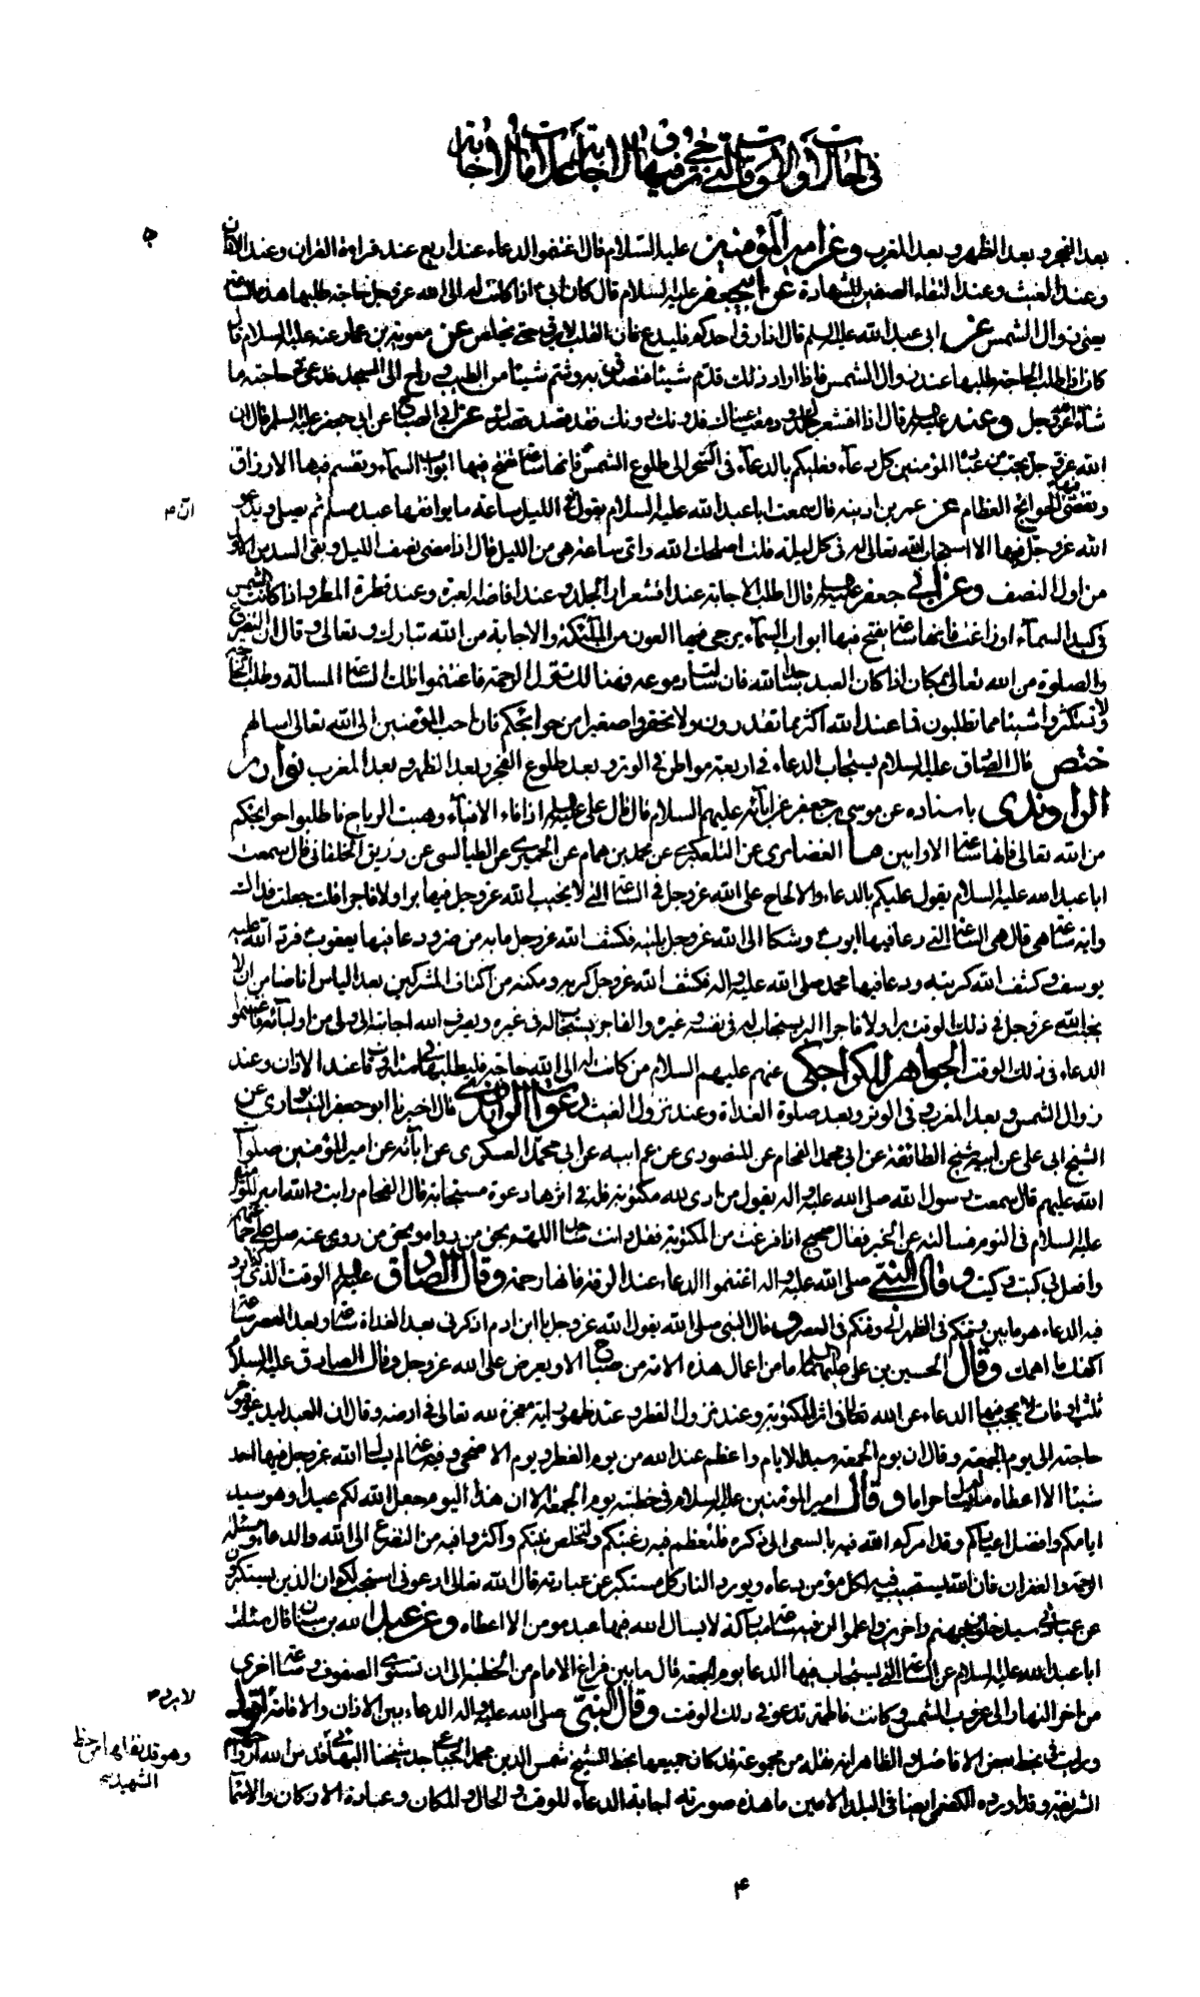 في الحالات والاوقات التي يرجى فيها الاجابة وعلامات الاجابة
بعد الفجر وبعد الظهر وبعد المغرب وعن امير المؤمنين عليه السلام قال اغتنموا الدعاء عند اربع عند قراءة القران وعند الاذان
وعند الغيث وعند التقاء الصفين للشهادة عن ابي جعفر عليه السلام قال كان ابي اذا كانت له الى الله عز وجل حاجة طلبها هذه الساعة
يعني زوال الشمس عن ابي عبد الله عليه السلم قال اذا رق احدكم فليدع فان القلب لا يرق حتى يخلص عن معوية بن عمار عنه عليه السلام قال
كان اذا طلب الحاجة طلبها عند زوال الشمس فاذا اراد ذلك قدم شيئا فتصدق به وشم شيئا من الطيب وراح الى المسجد فدعى في حاجته بما
شاء الله عز وجل وعنه عليه السلم قال اذا اقشعر جلدك ودمعت عيناك فدونك دونك فقد قصد قصدك عن ابي الصباح عن ابي جعفر عليه السلم قال ان
الله عز وجل يحب من عباده المؤمنين كل دعاء فعليكم بالدعاء في السحر الى طلوع الشمس فانها ساعة تفتح فيها ابواب السماء وتقسم فيها الارزاق
وتقضى فيها الحوائج العظام عن عمر بن اذينه قال سمعت ابا عبد الله عليه السلام يقول ان في الليل ساعة ما يوافقها عبد مسلم ثم يصلي ويدعو
الله عز وجل فيها الا استجاب الله تعالى له في كل ليلة قلت اصلحك الله واي ساعة هي من الليل قال اذا مضى نصف الليل وبقى السدس الاول
من اول النصف وعن ابي جعفر عليه السلم قال اطلب الاجابة عند اقشعرار الجلد وعند افاضة العبرة وعند قطرة المطر واذا كانت الشمس
في كبد السماء او زاغت فانها ساعة يفتح فيها ابواب السماء يرجى فيها العون من الملئكة والاجابة من الله تبارك وتعالى وقال ان التضرع
والصلوة من الله تعالى بمكان اذا كان العبد ساجدا لله فان سالت دموعه فهنالك تنزل الرحمة فاغتنموا تلك الساعة المسالة وطلب الحاجة
ولا تستكثروا شيئا مما تطلبون فما عند الله اكثر مما تقدرون ولا تحقروا صغيرا من حوائجكم فان احب المؤمنين الى الله تعالى اسالهم
ختص قال الصادق عليه السلام يستجاب الدعاء في اربعة مواطن في الوتر وبعد طلوع الفجر وبعد الظهر وبعد المغرب نوادر
الراوندي باسناده عن موسى بن جعفر عن ابائه عليهم السلام قال قال علي عليه السلم اذا فاء الافياء وهبت الرياح فاطلبوا حوائجكم
من الله تعالى فانها ساعة الاوابين ما الغضائري عن التلعكبري عن محمد بن همام عن الحميري عن الطيالسي عن رزيق الخلقاني قال سمعت
ابا عبد الله عليه السلام يقول عليكم بالدعاء والالحاح على الله عز وجل في الساعة التي لا يخيب الله عز وجل فيها برا ولا فاجرا قلت جعلت فداك
واية ساعة هي قال هي الساعة التي دعا فيها ايوب وشكا الى الله عز وجل بليته فكشف الله عز وجل ما به من ضر ودعا فيها يعقوب فرد الله عليه
يوسف وكشف الله كربته ودعا فيها محمد صلى الله عليه واله فكشف الله عز وجل كربه ومكنه من اكتاف المشركين بعد الياس انا ضامن ان لا
يخيب الله عز وجل في ذلك الوقت برا ولا فاجرا البر يستجاب له في نفسه وغيره والفاجر يستجاب له في غيره ويصرف الله اجابته الى ولي من اوليائه فاغتنموا
الدعاء في ذلك الوقت الجواهر للكراجكي عنهم عليهم السلام من كانت له الى الله حاجة فليطلبها في ستة اوقات عند الاذان وعند
زوال الشمس وبعد المغرب وفي الوتر وبعد صلوة الغداة وعند نزول الغيث دعوات الراوندي قال اخبرنا ابو جعفر النيسابوري عن
الشيخ ابي علي عن ابيه شيخ الطائفة عن ابي محمد الفحام عن المنصوري عن عم ابيه عن ابي محمد العسكري عن ابائه عن امير المؤمنين صلوات
الله عليهم قال سمعت رسول الله صلى الله عليه واله يقول من ادى لله مكتوبة فله في اثرها دعوة مستجابة قال الفحام رايت والله امير المؤمنين
عليه السلام في النوم فسالته عن الخبر فقال صحيح اذا فرغت من المكتوبة فقل وانت ساجد اللهم بحق من رواه وبحق من روي عنه صل على جماعتهم
وافعل بي كيت وكيت وقال النبي صلى الله عليه واله اغتنموا الدعاء عند الرقة فانها رحمة وقال الصادق عليه السلم الوقت الذي لا يرد
فيه الدعاء هو ما بين وقتكم في الظهر الى وقتكم في العصر وقال النبي صلى الله يقول الله عز وجل يا ابن ادم اذكرني بعد الغداة ساعة وبعد العصر ساعة
اكفك ما اهمك وقال الحسين بن علي عليهما السلم ما من اعمال هذه الامة من صباح الا ويعرض على الله عز وجل وقال الصادق عليه السلام
ثلثة اوقات لا يحجب فيها الدعاء عن الله تعالى في اثر المكتوبة وعند نزول القطر وعند ظهور اية معجزة لله تعالى في ارضه وقال ان العبد ليدعو فيؤخر
حاجته الى يوم الجمعة وقال ان يوم الجمعة سيد الايام واعظم عند الله من يوم الفطر ويوم الاضحى وفيه ساعة لم يسال الله عز وجل فيها احد
شيئا الا اعطاه ما لم يسال حراما وقال امير المؤمنين عليه السلام في خطبته يوم الجمعة الا ان هذا اليوم جعل الله لكم عيدا وهو سيد
ايامكم وافضل اعيادكم وقد امركم الله فيه بالسعي الى ذكره فلتعظم فيه رغبتكم ولتخلص نيتكم واكثروا فيه من التضرع الى الله والدعاء ومسئلة
الرحمة والغفران فان الله يستجيب فيه لكل مؤمن دعاء ويورد النار كل مستكبر عن عبادته قال الله تعالى ادعوني استجب لكم ان الذين يستكبرون
عن عبادتي سيدخلون جهنم داخرين واعلموا ان فيه ساعة مباركة لا يسال الله فيها عبد مؤمن الا اعطاه وعن عبد الله بن سنان قال سئلت
ابا عبد الله عليه السلام عن الساعة التي يستجاب فيها الدعا يوم الجمعة قال ما بين فراغ الامام من الخطبة الى ان تستوي الصفوف وساعة اخرى
من اخر النهار الى غروب الشمس وكانت فاطمة تدعو في ذلك الوقت وقال النبي صلى الله عليه واله الدعاء بين الاذان والاقامة
ورايت في بخط بعض الافاضل والظاهر انه نقله من مجموعة قد كان جميعها بخط الشيخ شمس الدين محمد الجباعي جد شيخنا البهائي قدس الله
الشريفة وقد اورده الكفعمي ايضا في البلد الامين ما هذه صورته اجابة الدعاء للوقت والحال والمكان وعبادة الاركان والاسماء
ان في ۴
لا يرد ۳
وهو قد نقله من خط
الشهيد
۴